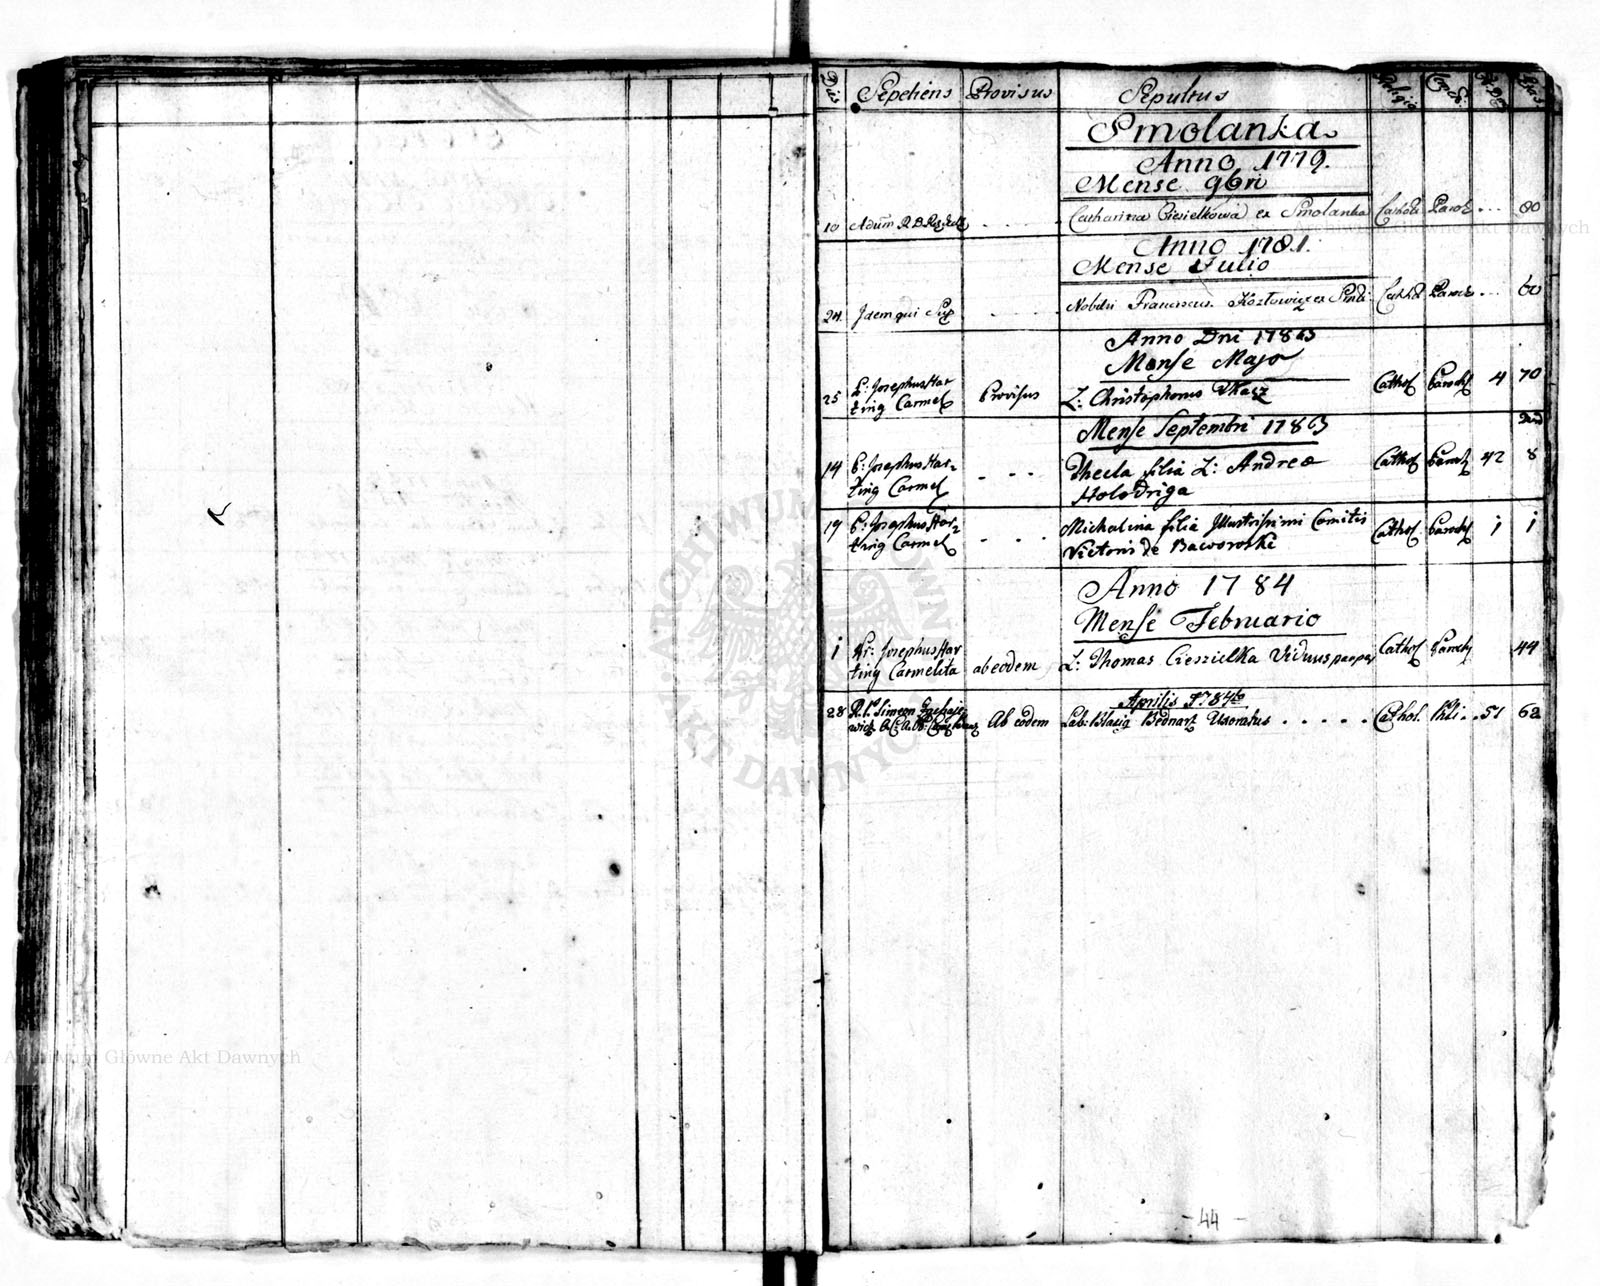 Dies Sepeliens Provisus Sepultus Religio
Smolanka
Anno 1779.
Mense 9bri
10 Adum R D . . . . . Catharina Ciesielkowa ex Smolanka Cathol Paroh . . . 80
Anno 1781.
Mense Julio
24. Idem qui Sup . . . . . Nobilis Franciscus Kozłowicz ex Smol: Cathol Paroch . . . 60
Anno Dni 1783
Mense Majo
25 P: Josephus Har
ting Carmel Provisus L: Christophorus Tkacz Cathol Paroch 4 70
Mense Septembri 1783
14 P: Josephus Har-
ting Carmel - - - Thecla filia L: Andreæ
Holodriga Cathol Paroch 42 8
19 P: Josephus Har-
ting Carmel - - - Michalina filia Illustrissimi Comitis
Victoris de Baworowski Cathol Paroch 1 1
Anno 1784
Mense Februario
1 Fr: Josephus Har
ting Carmelita ab eodem L: Thomas Cieszielka Viduus pauper Cathol Paroch 44
Aprilis 1784to
28 R. P. Simeon
Ab eodem Lab: Blasig Bednarz Uxoratus . . . . . Cathol. 51 62
- 44 -
Archiwum Główne Akt Dawnych
ARCHIWUM GŁÓWNE AKT DAWNYCH
Archiwum Główne Akt Dawnych